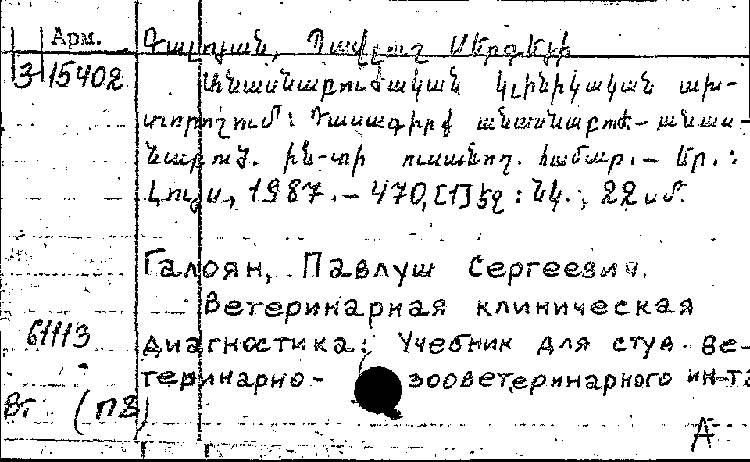 Арм. Գալոյան, Պավլուշ Սերգեյի
3-15402 Անասնաբուժական կլինիկական ախ-
տորոշում: Դասագիրք անասնաբուժ-անաս-
նաբուծ. ին-տի ուսանող. համար.— Եր.:
Լույս, 1987.— 470,[1] էջ : նկ.; 22 սմ.
Галоян, Павлуш Сергеевич.
Ветеринарная клиническая
61113 диагностика: Учебник для студ. ве-
теринарно- зооветеринарного ин-та
Вг (ПЗ)
А